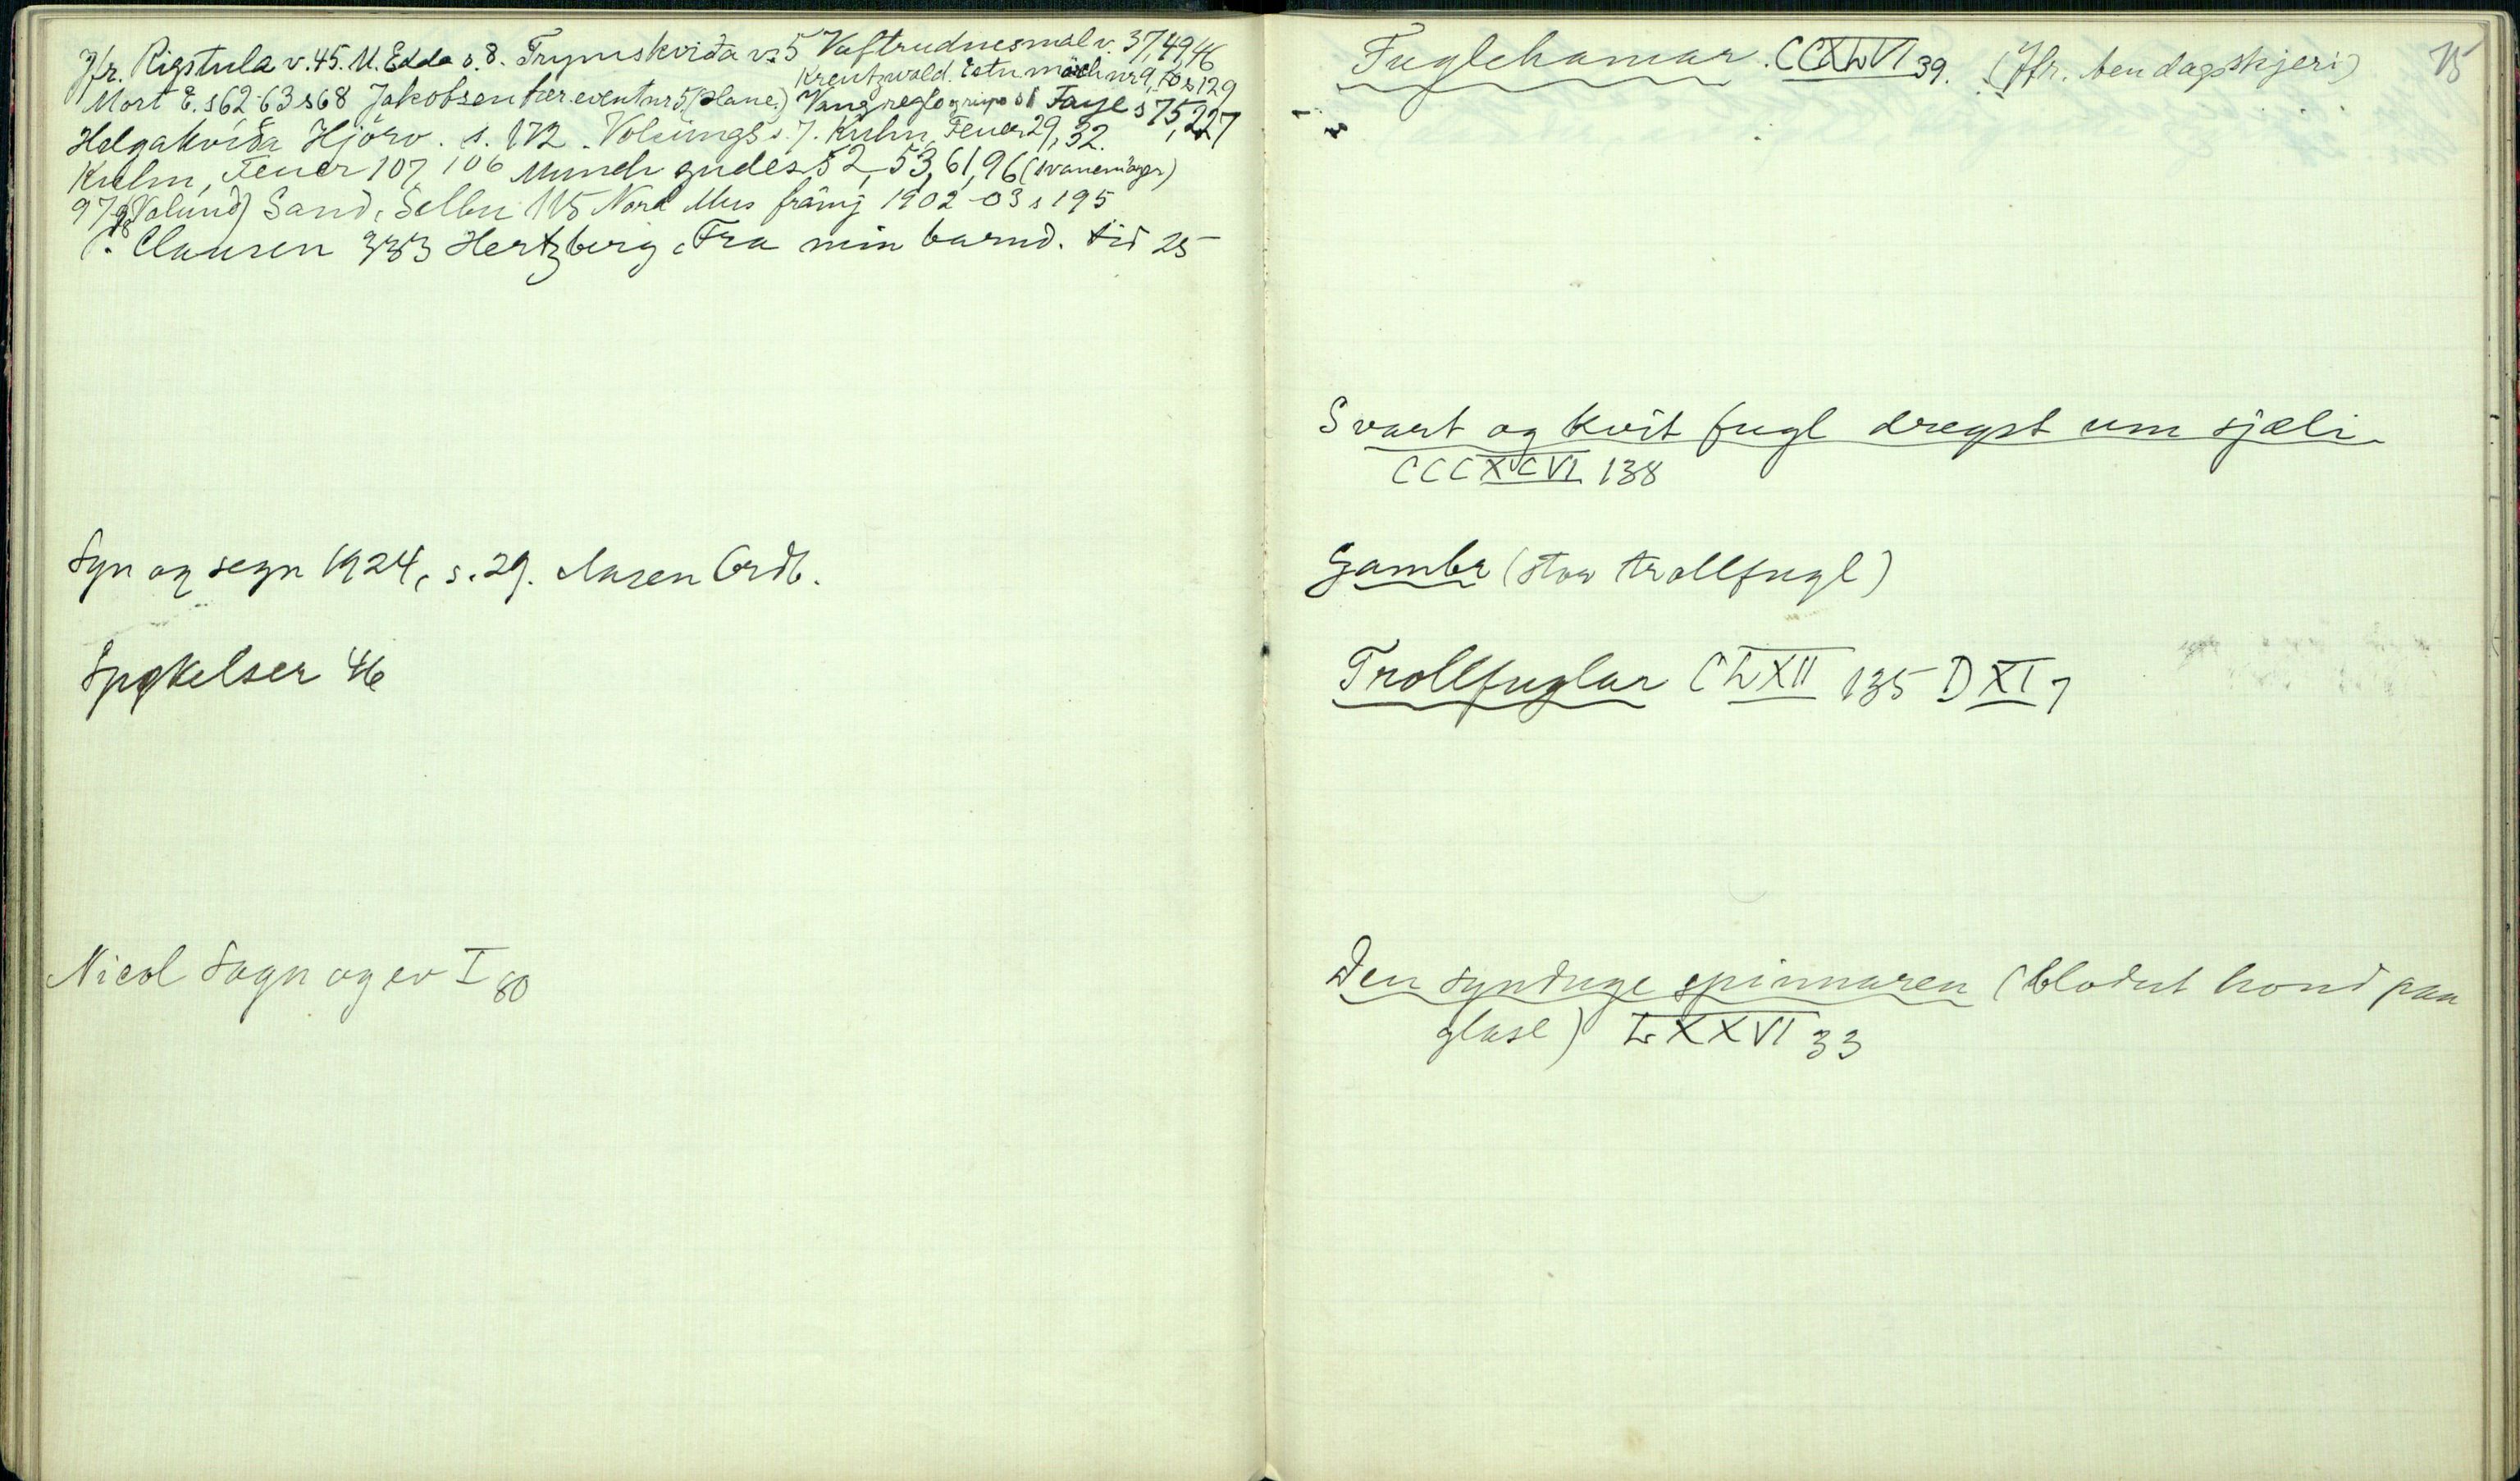 Jfr. Rigstula v. 45. U. Edda s. 8. Trymskviða v. 5 Vaftrudnesmal v. 37, 49, 46
Kreutzwald. Estn. märch nr 9, 70 s 129
Mort E. s 62-63 s 68 Jakobsen fær. event nr 5 (Svane.) Vang s Faye s 75, 227
Helgakviða Hjörv. s. 172. Volsungs s. 7. Kuhn, Feuer 29, 32.
Kuhn, Feuer 107, 106 Munch gudes 52, 53, 61, 96 (svanemøyar)
97, 98 (Volund) Sand, Selbu 115 Nord Mus främj 1902-03 s 195
C. Clausen 383 Hertzberg, Fra min barnd. tid 25
Syn og segn 1924, s. 29. Aasen Ordb.
Spøkelser 46
Nicol Sogn og ev I 80
75
Fuglehamar. CCXLVI 39. (Jfr. )
Svart og kvit fugl dregst um sjæli.
CCCXCVI 138
Gambr (stor trollfugl)
Trollfuglar CLXII 135 DXI 7
Den synduge spinnaren (blodut hond paa
glase) LXXVI 33